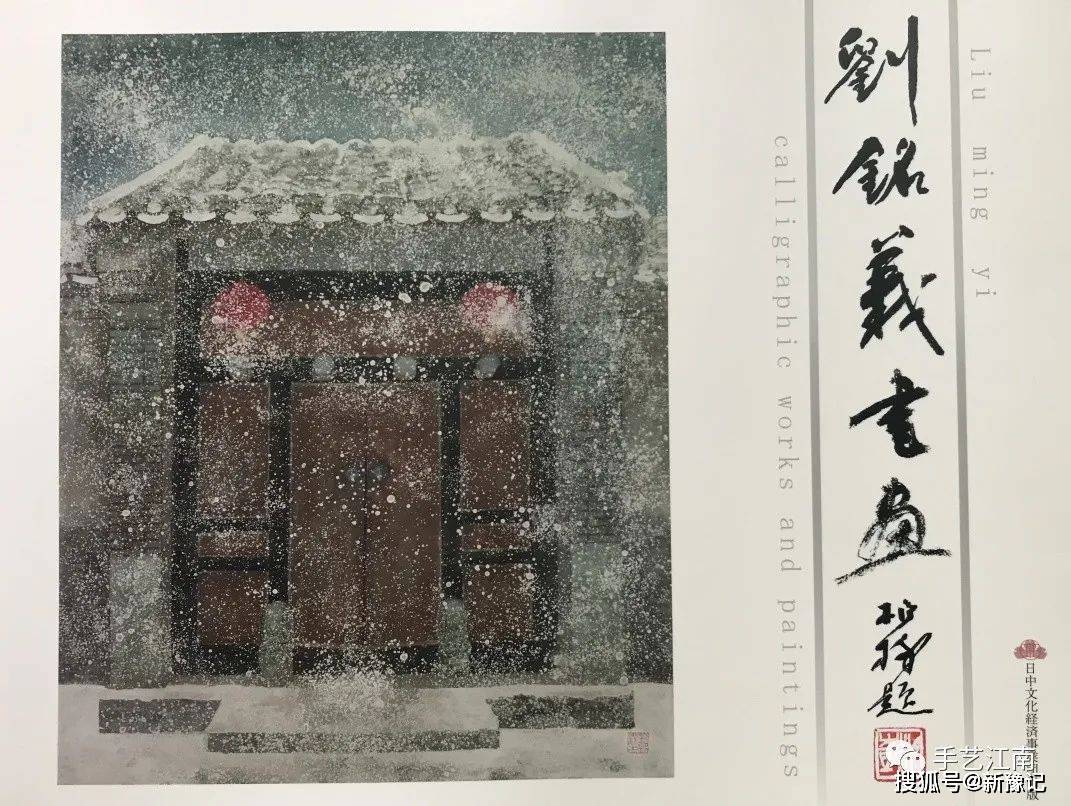 劉銘義書画
题
Liu ming yi
calligraphic works and paintings
日中文化経済事業
版
手艺江南
搜狐号@新豫记